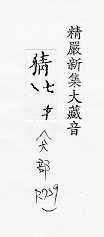 精嚴新集大藏音
猜七才(犬部